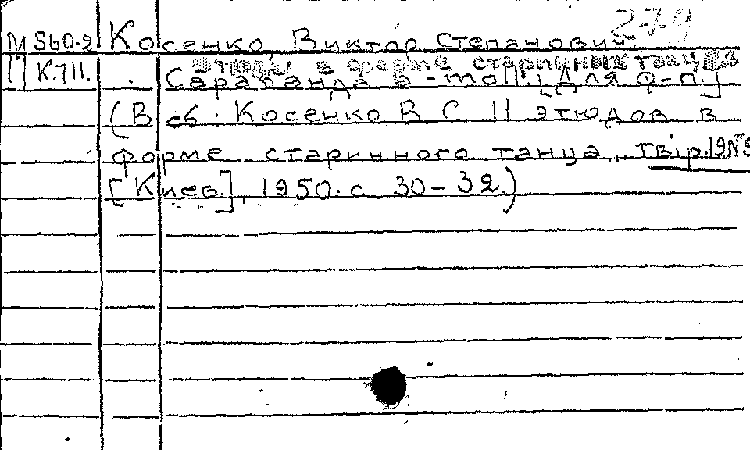 279
М 560-2 Косенко, Виктор Степанович.
П К.711. Этюды в форме старинных танцев
Сарабанда a-moll. [Для ф-п.]
(В сб. Косенко В. С. 11 этюдов в
форме старинного танца, твір.19 №5
[Киев], 1950. с. 30-32.)